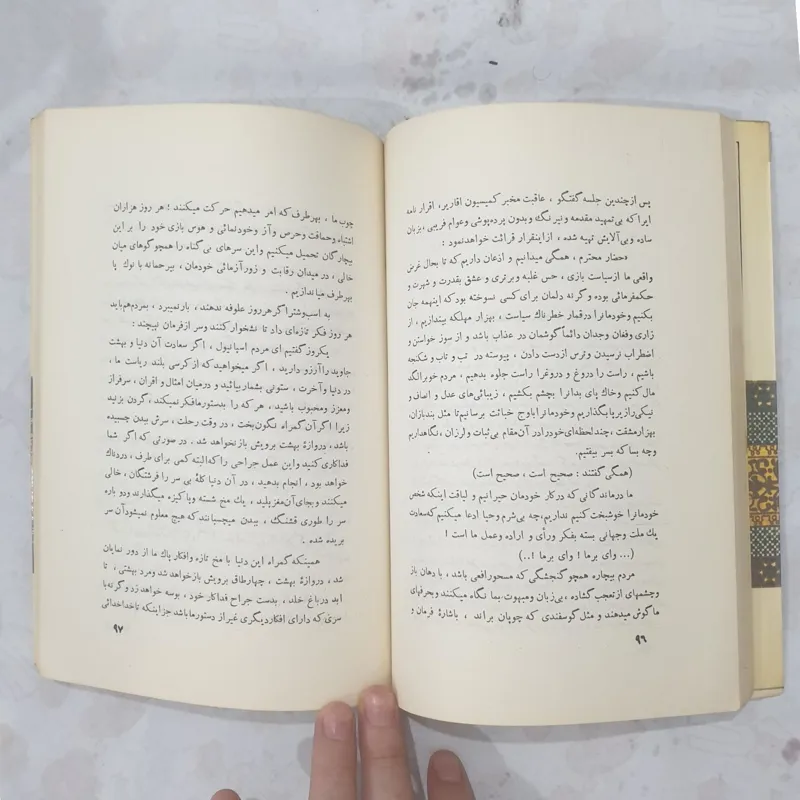 پس از چندین جلسه گفتگو ، عاقبت مخبر کمیسیون اقاریر، اقرار نامه
ایرا که بی‌تمهید مقدمه و نیرنگ وبدون پرده‌پوشی وعوام فریبی ، بزبان
ساده وبی‌آلایش تهیه شده ، ازاینقرار قرائت خواهدنمود :
«حضار محترم ، همگی میدانیم و اذعان داریم که تا بحال غرض
واقعی ما ازسیاست بازی ، حس غلبه وبرتری و عشق بقدرت و شهرت و
حکمفرمائی بوده و گرنه دلمان برای کسی نسوخته بود که اینهمه جان
بکنیم وخودمانرا درقمار خطرناك سیاست ، بهزار مهلکه بیندازیم ، از
زاری وفغان وجدان دائماً گوشمان در عذاب باشد و از سوز خواستن و
اضطراب نرسیدن وترس ازدست دادن ، پیوسته در تب و تاب و شکنجه
باشیم ، راست را دروغ و دروغرا راست جلوه بدهیم ، مردم خوبرالگد
مال کنیم وخاك پای بدانرا بچشم بکشیم ، زیبائی‌های عدل و انصاف و
نیکی‌رازیرپابگذاریم وخودمانرا باوج خباثت برسانیم‌تا مثل بندبازان،
بهزارمشقت ، چندلحظه‌ای‌خودرادر آن‌مقام بی‌ثبات و لرزان ، نگاهداریم
وچه بساکه سر بیفتیم.
(همگی گفتند : صحیح است ، صحیح است)
ما درماندگانی که درکار خودمان حیرانیم و لیاقت اینکه شخص
خودمانرا خوشبخت کنیم نداریم،چه بی‌شرم وحیا ادعا میکنیم‌که‌سعادت
یك ملت وجهانی بسته بفکر ورأی و اراده وعمل ما است !
(... وای برما ! وای برما !..)
مردم بیچاره همچو گنجشگی که مسحورافعی باشد ، با دهان باز
وچشمهای ازتعجب گشاده ، بی‌زبان ومبهوت بما نگاه میکنند وبحرفهای
ماگوش میدهند و مثل گوسفندی که چوپان براند ، باشارهٔ فرمان و
۹۶
چوب ما ، بهرطرف که امر میدهیم حرکت میکنند ! هر روز هزاران
اشتباه وحماقت وحرص وآز وخودنمائی و هوس بازی خود را بر این
بیچارگان تحمیل میکنیم واین سرهای بی گناه را همچوگوهای میان
خالی ، در میدان رقابت و زورآزمائی خودمان ، بیرحمانه با نوك پا
بهرطرف میاندازیم .
به اسب‌وشتراگرهرروز علوفه ندهند، بارنمیبرد ، بمردم‌هم‌باید
هر روز فکر تازه‌ای داد تا نشخوار کنند وسر ازفرمان نپیچند :
یکروز گفتیم ای مردم اسپانیول ، اگر سعادت آن دنیا و بهشت
جاوید را آرزو دارید ، اگر میخواهیدکه ازکرسی بلند ریاست ما ،
در دنیا وآخرت ، ستونی بشمار بیائید و درمیان امثال و اقران ، سرفراز
ومعزز ومحبوب باشید ، هر که را بدستورمافکرنمیکند، گردن بزنید
زیرا اگر آن گمراه نگون‌بخت ، در وقت رحلت ، سرش ببدن چسبیده
باشد، دروازهٔ بهشت برویش بازنخواهد شد . در صورتی که اگر شما
فداکاری کنید واین عمل جراحی را که‌البته کمی برای طرف ، دردناك
خواهد بود ، انجام بدهید ، در آن دنیا کلهٔ بی سر را فرشتگان ، خالی
میکنند وبجای‌آن‌مغزپلید ، یك مخ شسته وپاکیزه میگذارند ودو باره
سر را طوری قشنگ ، ببدن میچسبانند که هیچ معلوم نمیشودآن‌سر
بریده شده .
همینکه گمراه این دنیا با مخ تازه وافکار پاك ما از دور نمایان
شد ، دروازهٔ بهشت ، چهارطاق برویش بازخواهد شد ومرد بهشتی ، تا
ابد درباغ خلد ، بدست جراح فداکار خود ، بوسه خواهد زد و گرنه با
سری که دارای افکاردیگری غیر از دستورماباشد جزاینکه تاخداخدائی
۹۷